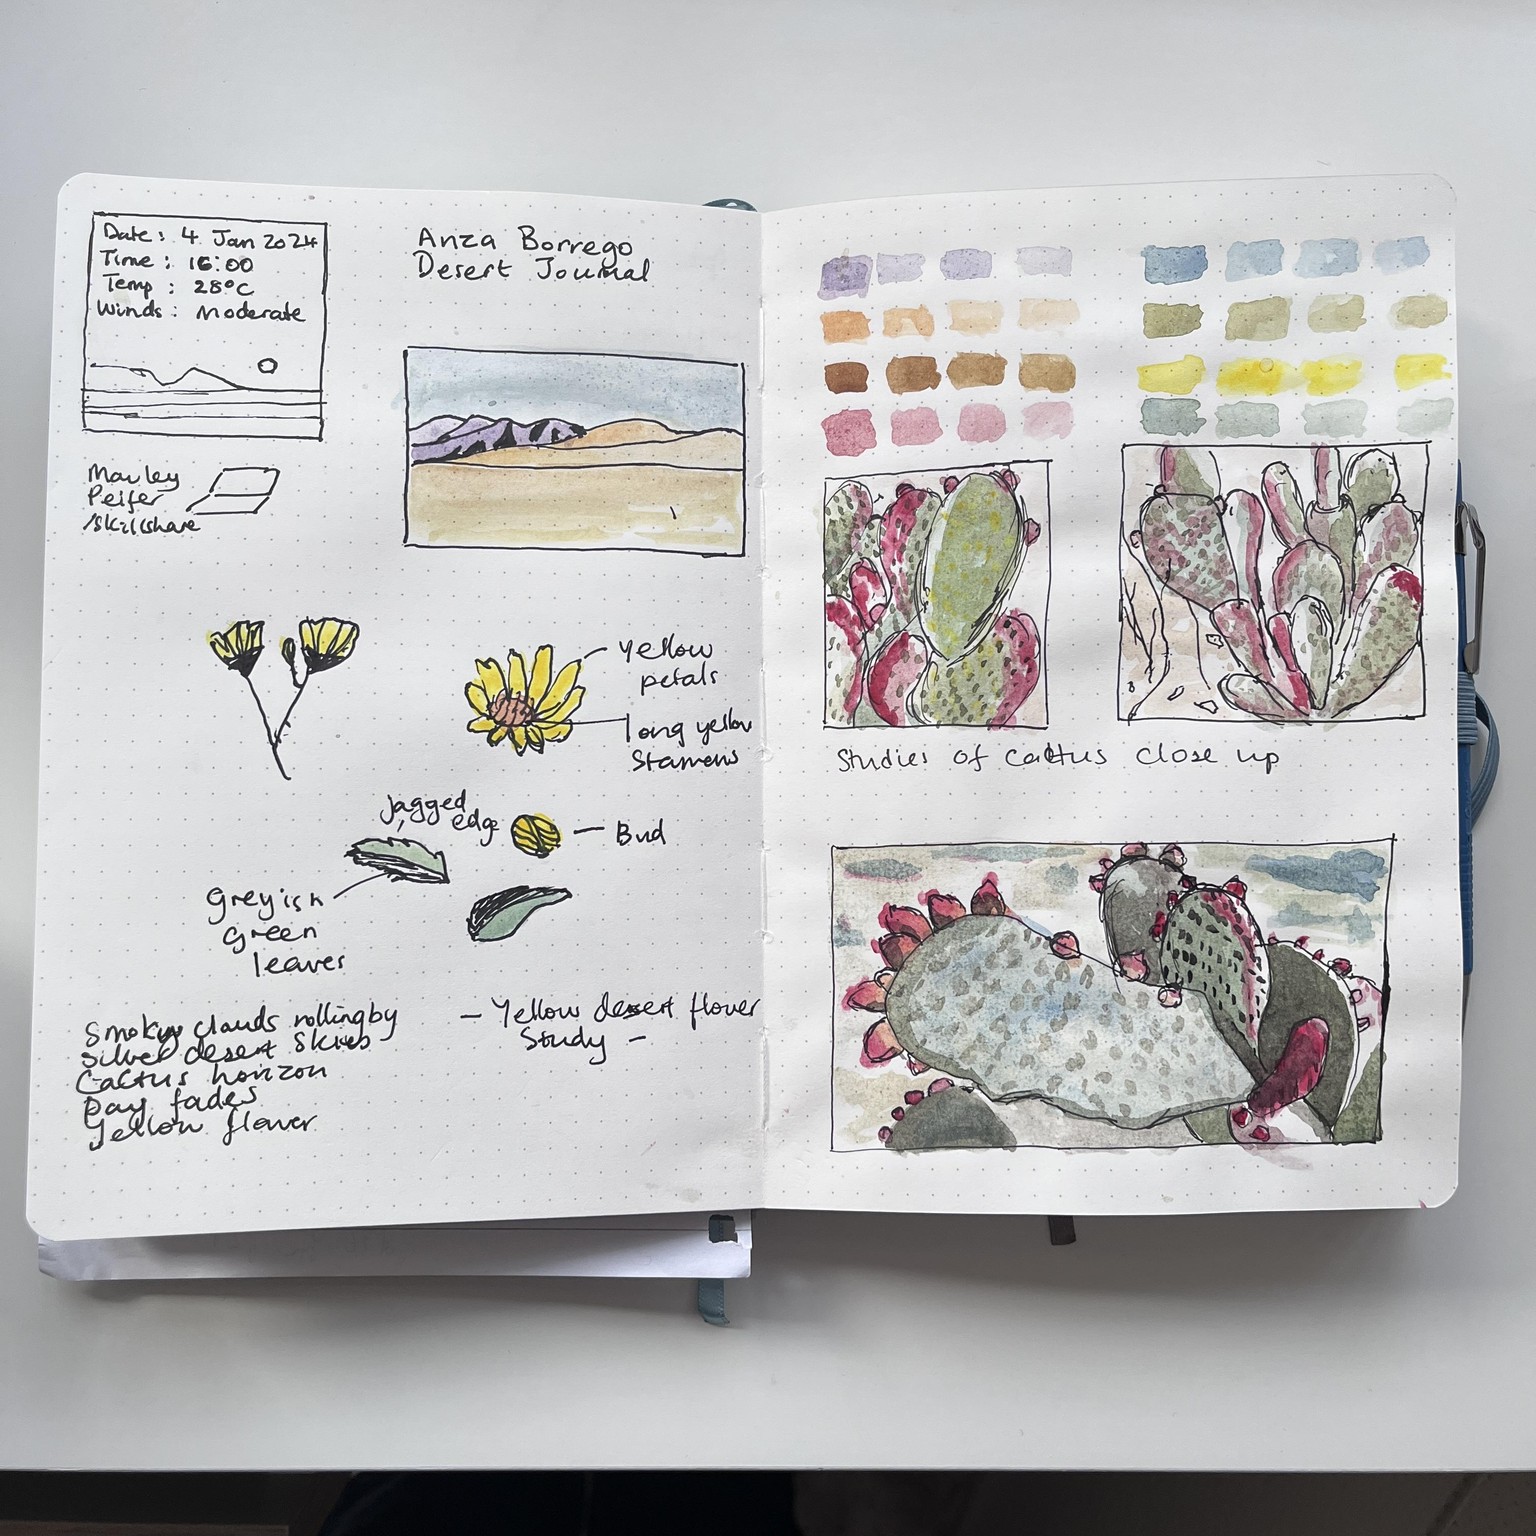 Date: 4 Jan 2024
Time: 16:00
Temp: 28°C
Winds: Moderate
Anza Borrego
Desert Journal
Marley
Peifer
/skillshare
Yellow
petals
long yellow
Stamens
Jagged
edge
Bud
Greyish
green
leaves
Smokey clouds rolling by
Silver desert Skies
Cactus horizon
Day fades
Yellow flower
- Yellow desert flower
Study -
Studies of cactus close up